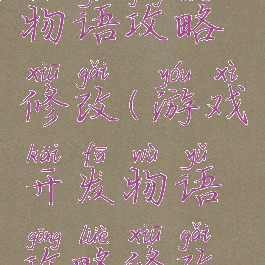 物语攻略
xiū gǎi yóu xì
修改(游戏
kāi fā wù yǔ
开发物语
gōng lüè xiū gǎi
攻略修改